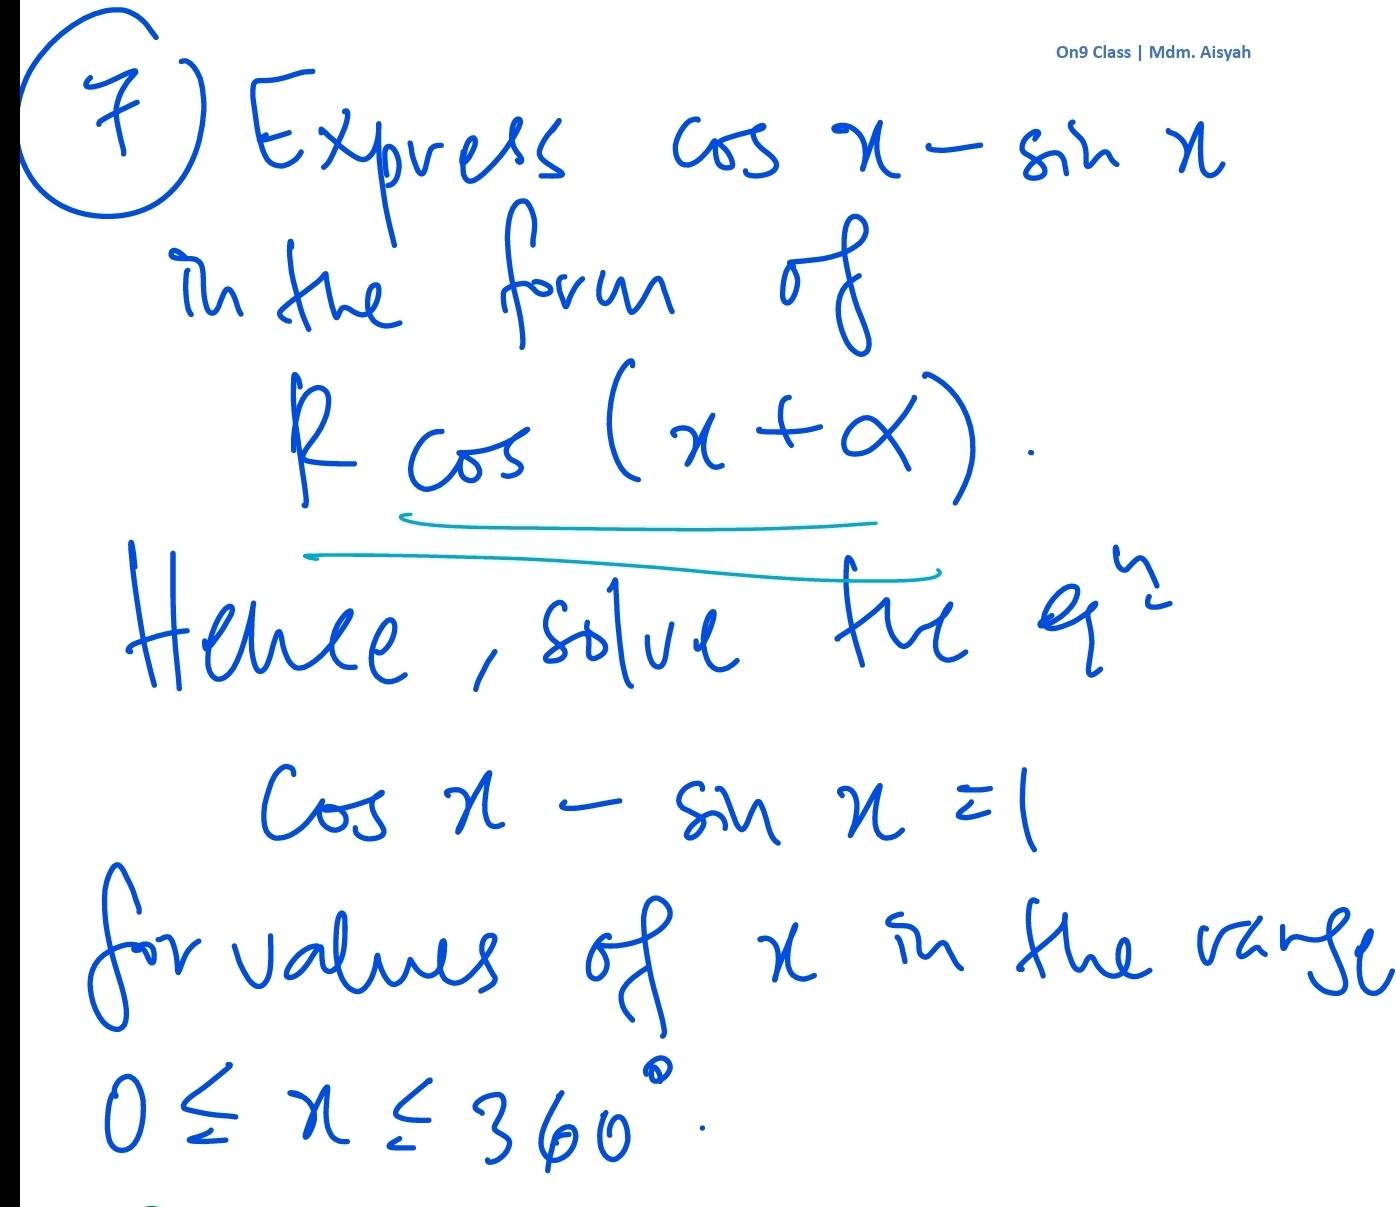 On9 Class | Mdm. Aisyah
7 Express cos x - sin x
in the form of
R cos (x + α).
Hence, solve the eqⁿ
Cos x - sin x = 1
for values of x in the range
0 ≤ x ≤ 360°.